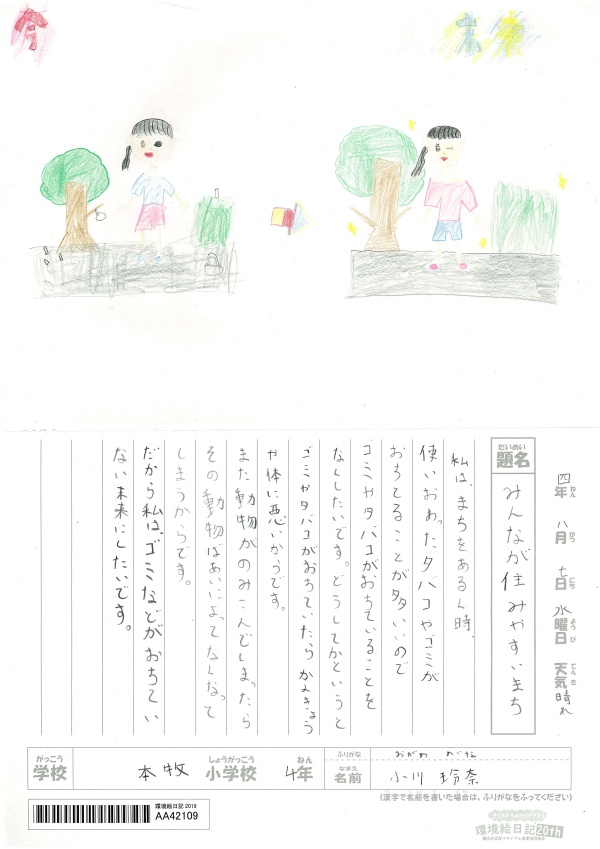 今
未来
四年 八月 七日 水曜日 天気 晴れ
ねん がつ にち ようび てんき
だいめい
題名
みんなが住みやすいまち
私は、まちをあるく時、
使いおわったタバコやゴミが
おちてることが多いいので
ゴミやタバコがおちていることを
なくしたいです。どうしてかというと
ゴミやタバコがおちていたらかんきょう
や体に悪いからです。
また動物がのみこんでしまったら
その動物ばあいによってなくなって
しまうからです。
だから私は、ゴミなどがおちてい
ない未来にしたいです。
がっこう しょうがっこう ねん
学校 本牧 小学校 4年
ふりがな おがわ れな
なまえ
名前 小川 玲奈
(漢字で名前を書いた場合は、ふりがなをふってください)
環境絵日記2019
AA42109
環境絵日記 20th